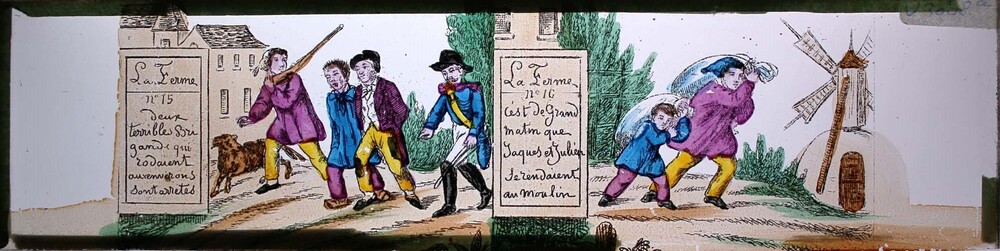 La Ferme
n° 15
deux
terrible Bri
gands qui
rodaient
aux environs
sont arretés
La Ferme
n° 16
c'est de Grand
matin que
Jaques et Julien
se rendaient
au moulin